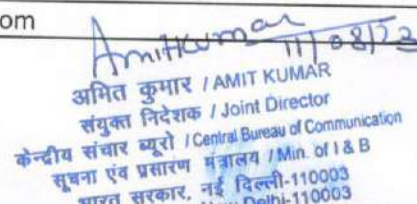 om
Amitkumar
11/08/23
अमित कुमार / AMIT KUMAR
संयुक्त निदेशक / Joint Director
केन्द्रीय संचार ब्यूरो / Central Bureau of Communication
सूचना एंव प्रसारण मंत्रालय / Min. of I & B
भारत सरकार, नई दिल्ली-110003
New Delhi-110003